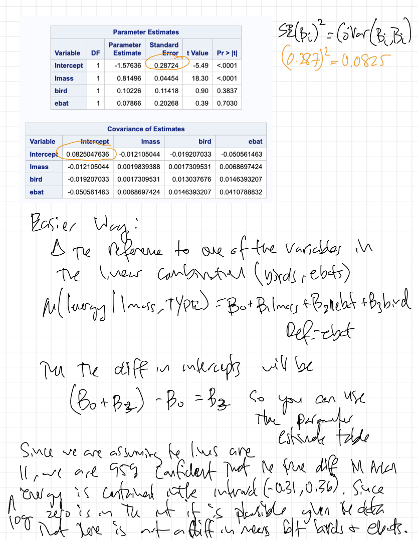 Parameter Estimates
Variable DF Parameter Estimate Standard Error t Value Pr > |t|
Intercept 1 -1.57636 0.28724 -5.49 <.0001
lmass 1 0.81496 0.04454 18.30 <.0001
bird 1 0.10226 0.11418 0.90 0.3837
ebat 1 0.07866 0.20268 0.39 0.7030
SE(Bi)² = Côvar(Bi, Bi)
(0.287)² = 0.0825
Covariance of Estimates
Variable Intercept lmass bird ebat
Intercept 0.0825047636 -0.012105044 -0.019207033 -0.050561463
lmass -0.012105044 0.0019839388 0.0017309531 0.0068697424
bird -0.019207033 0.0017309531 0.013037676 0.0146393207
ebat -0.050561463 0.0068697424 0.0146393207 0.0410788832
Easier Way:
Δ The reference to one of the variables in
The linear combination (birds, ebats)
μ(lenergy | lmass, TYPE) = B0 + B1lmass + B2nebat + B3bird
Ref = ebat
Then The diff in intercepts will be
(B0 + B3) - B0 = B3 so you can use
The parameter
Estimate table
Since we are assuming the lines are
||, we are 95% confident that the true diff in mean
log energy is contained in the interval (-0.31, 0.36). Since
zero is in the int it is plausible given the data
that there is not a diff in means bt birds & ebats.